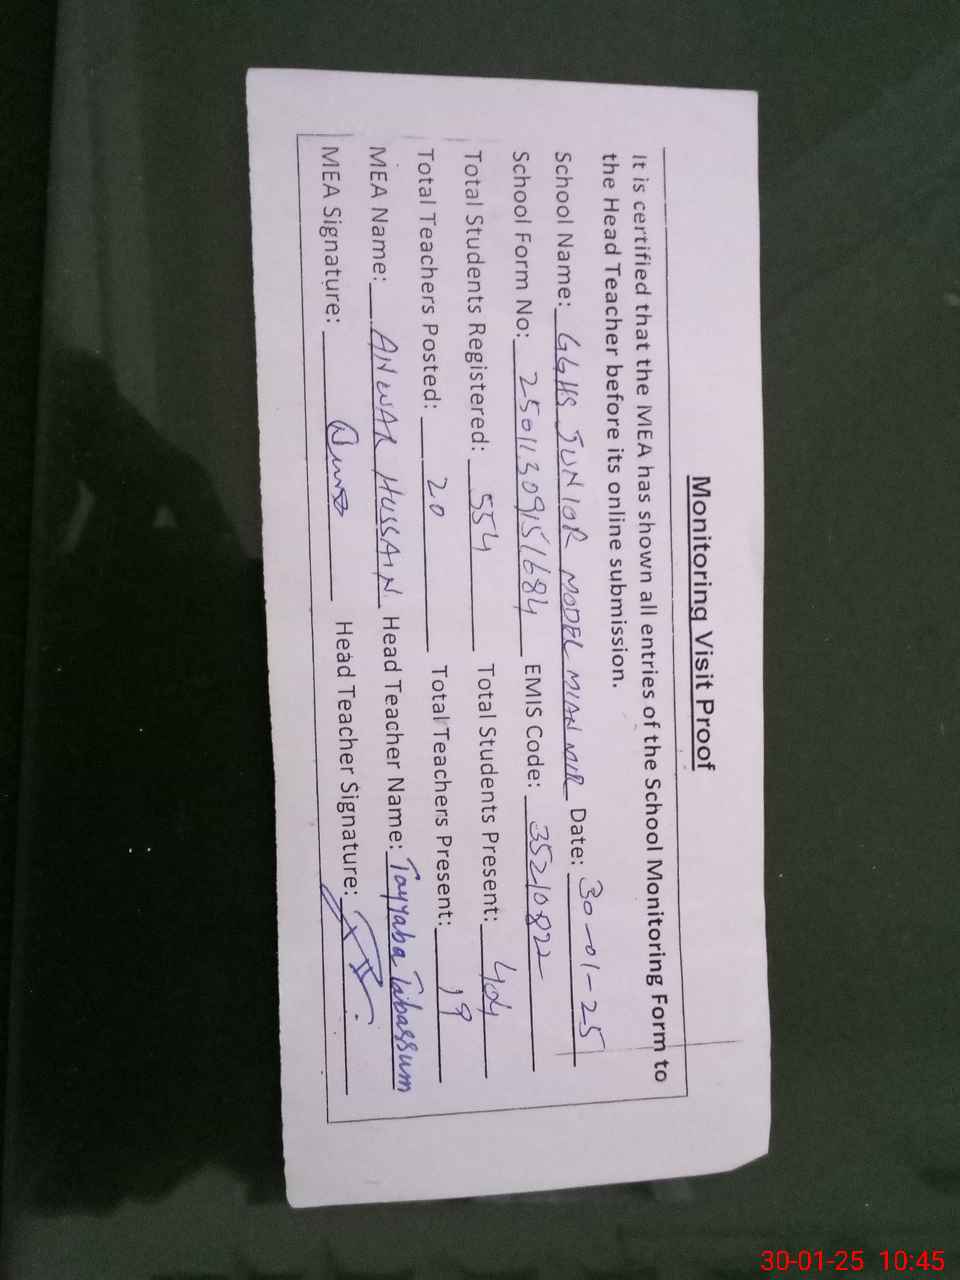 Monitoring Visit Proof
It is certified that the MEA has shown all entries of the School Monitoring Form to
the Head Teacher before its online submission.
School Name: GGHS JUNIOR MODEL MIAN MIR Date: 30-01-25
School Form No: 25011309151684 EMIS Code: 35210822
Total Students Registered: 554 Total Students Present: 404
Total Teachers Posted: 20 Total Teachers Present: 19
MEA Name: ANWAR HUSSAIN Head Teacher Name: Tayyaba Tabassum
MEA Signature: Head Teacher Signature:
30-01-25 10:45